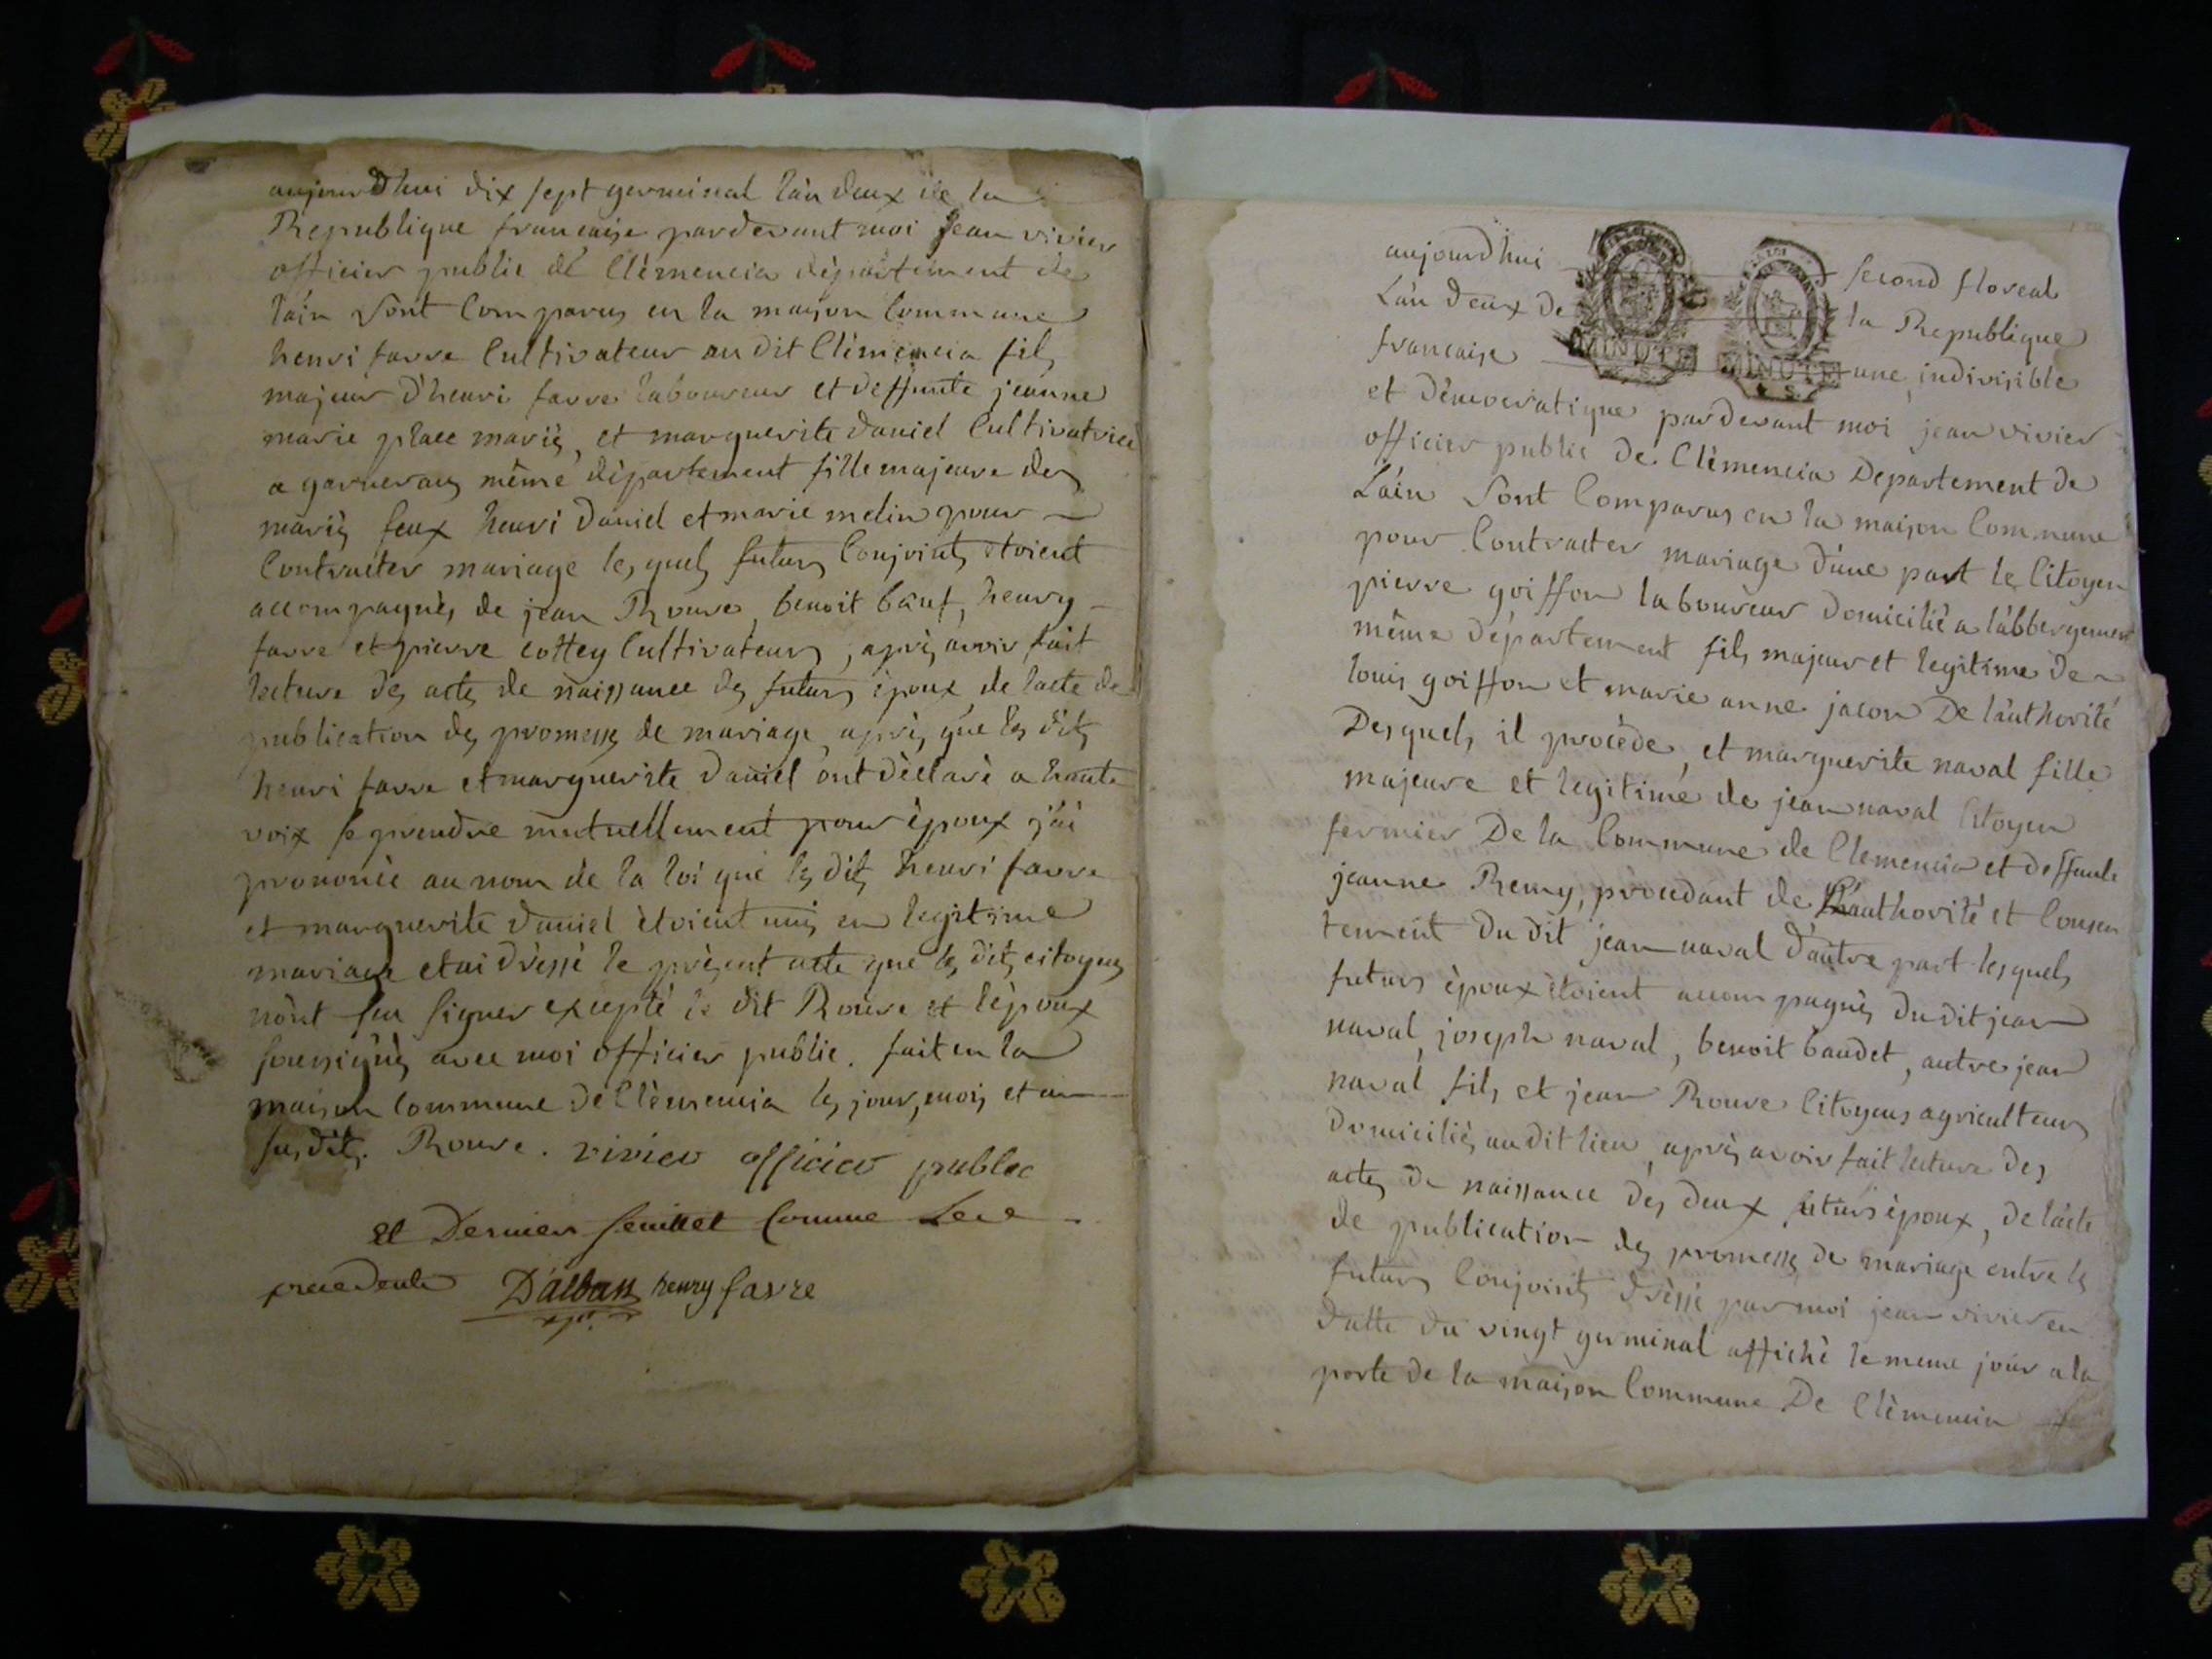 aujourdhui dix sept germinal lan deux de la
Republique française pardevant moi jean vivier
officier public de Clémencia département de
lain sont Comparus en la maison Commune
henri favre Cultivateur au dit Clémencia fils
majeur d'henri favre laboureur et deffunte jeanne
marie place mariés, et marguerite daniel Cultivatrice
a garnerans même département fille majeure des
mariés feux henri daniel et marie melin pour
Contracter mariage lesquels futurs Conjoints étoient
accompagnés de jean Rouve, benoit bauf, henry
favre et pierre cottey Cultivateurs, après avoir fait
lecture des actes de naissance des futurs époux de lacte de
publication des promesses de mariage, après que les dits
henri favre et marguerite daniel ont déclaré a haute
voix se prendre mutuellement pour époux j'ai
prononcé au nom de la loi que les dits henri favre
et marguerite daniel étoient unis en legitime
mariage et ai dressé le present acte que les dits citoyens
n'ont su signer excepté le dit Rouve et l'époux
soussignés avec moi officier public. fait en la
maison Commune de Clémencia les jour, mois et an
susdits. Rouve. vivier officier public
et Dernier feuillet Comme
precedente D'alban henry favre
aujourdhui second floreal
Lan deux de la Republique
francaise une indivisible
MINUTE MINUTE
et démocratique pardevant moi jean vivier
officier public de Clémencia Département de
Lain sont Comparus en la maison Commune
pour Contracter mariage d'une part le Citoyen
pierre goiffon laboureur domicilié a l'abbergement
même département fils majeur et legitime de
louis goiffon et marie anne jacon De l'authorité
Desquels il procède, et marguerite naval fille
majeure et legitime de jean naval Citoyen
fermier De la Commune de Clemencia et deffunte
jeanne Remy, procedant de l'authorité et Consen
tement du dit jean naval d'autre part lesquels
futurs époux étoient accompagnés du dit jean
naval, joseph naval, benoit baudet, autre jean
naval fils et jean Rouve Citoyens agriculteurs
domiciliés au dit lieu, après avoir fait lecture des
actes de naissance des deux futurs époux, de lacte
de publication des promesses de mariage entre les
futurs Conjoints dressé par moi jean vivier en
datte du vingt germinal affiché le meme jour a la
porte de la maison Commune De Clémencia